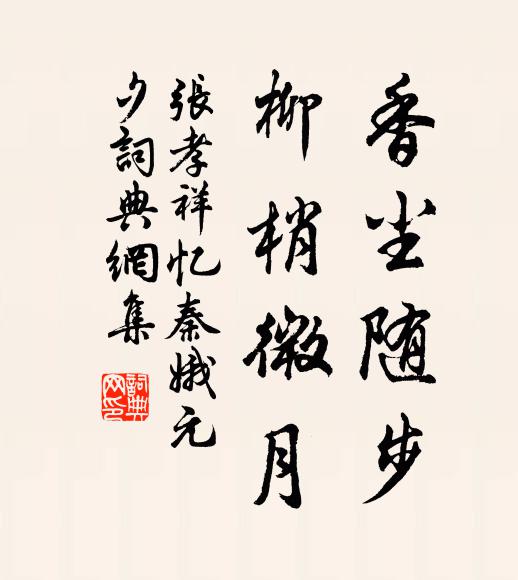 香尘随步
柳梢微月
張孝祥忆秦娥元
夕詞典網集
詞典
网印